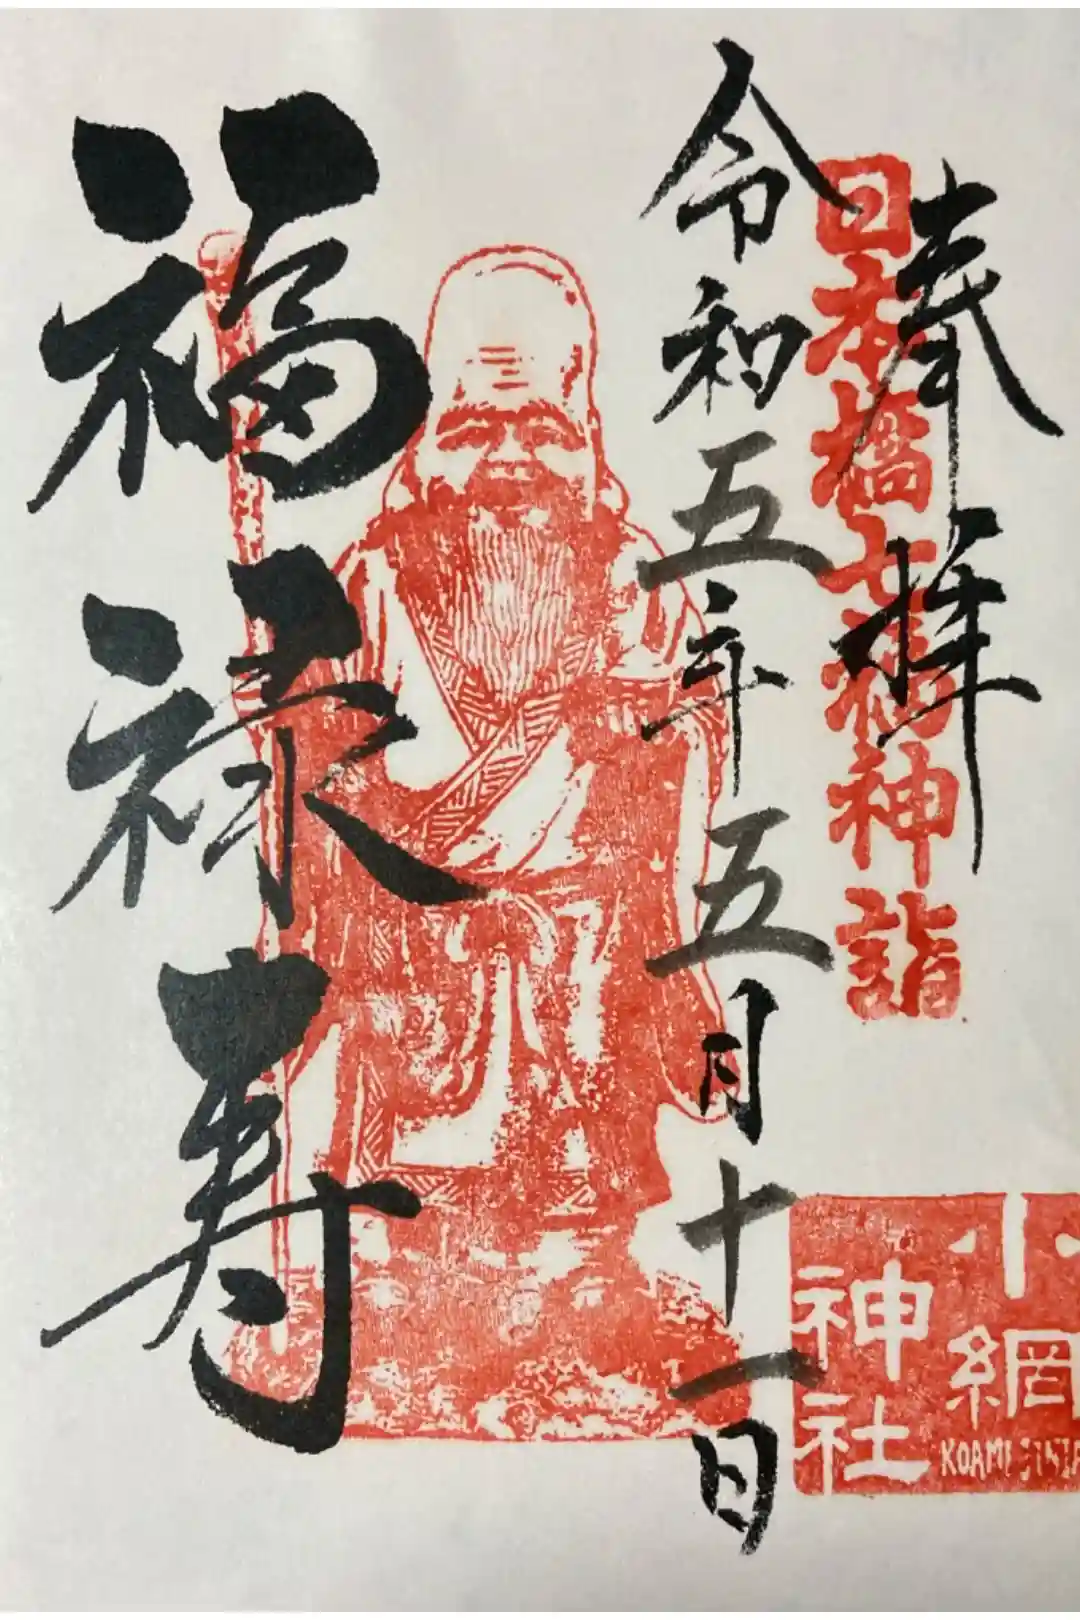 奉拝
日本橋七福神詣
令和五年五月十一日
福禄寿
小網
神社
KOAMI JINJA